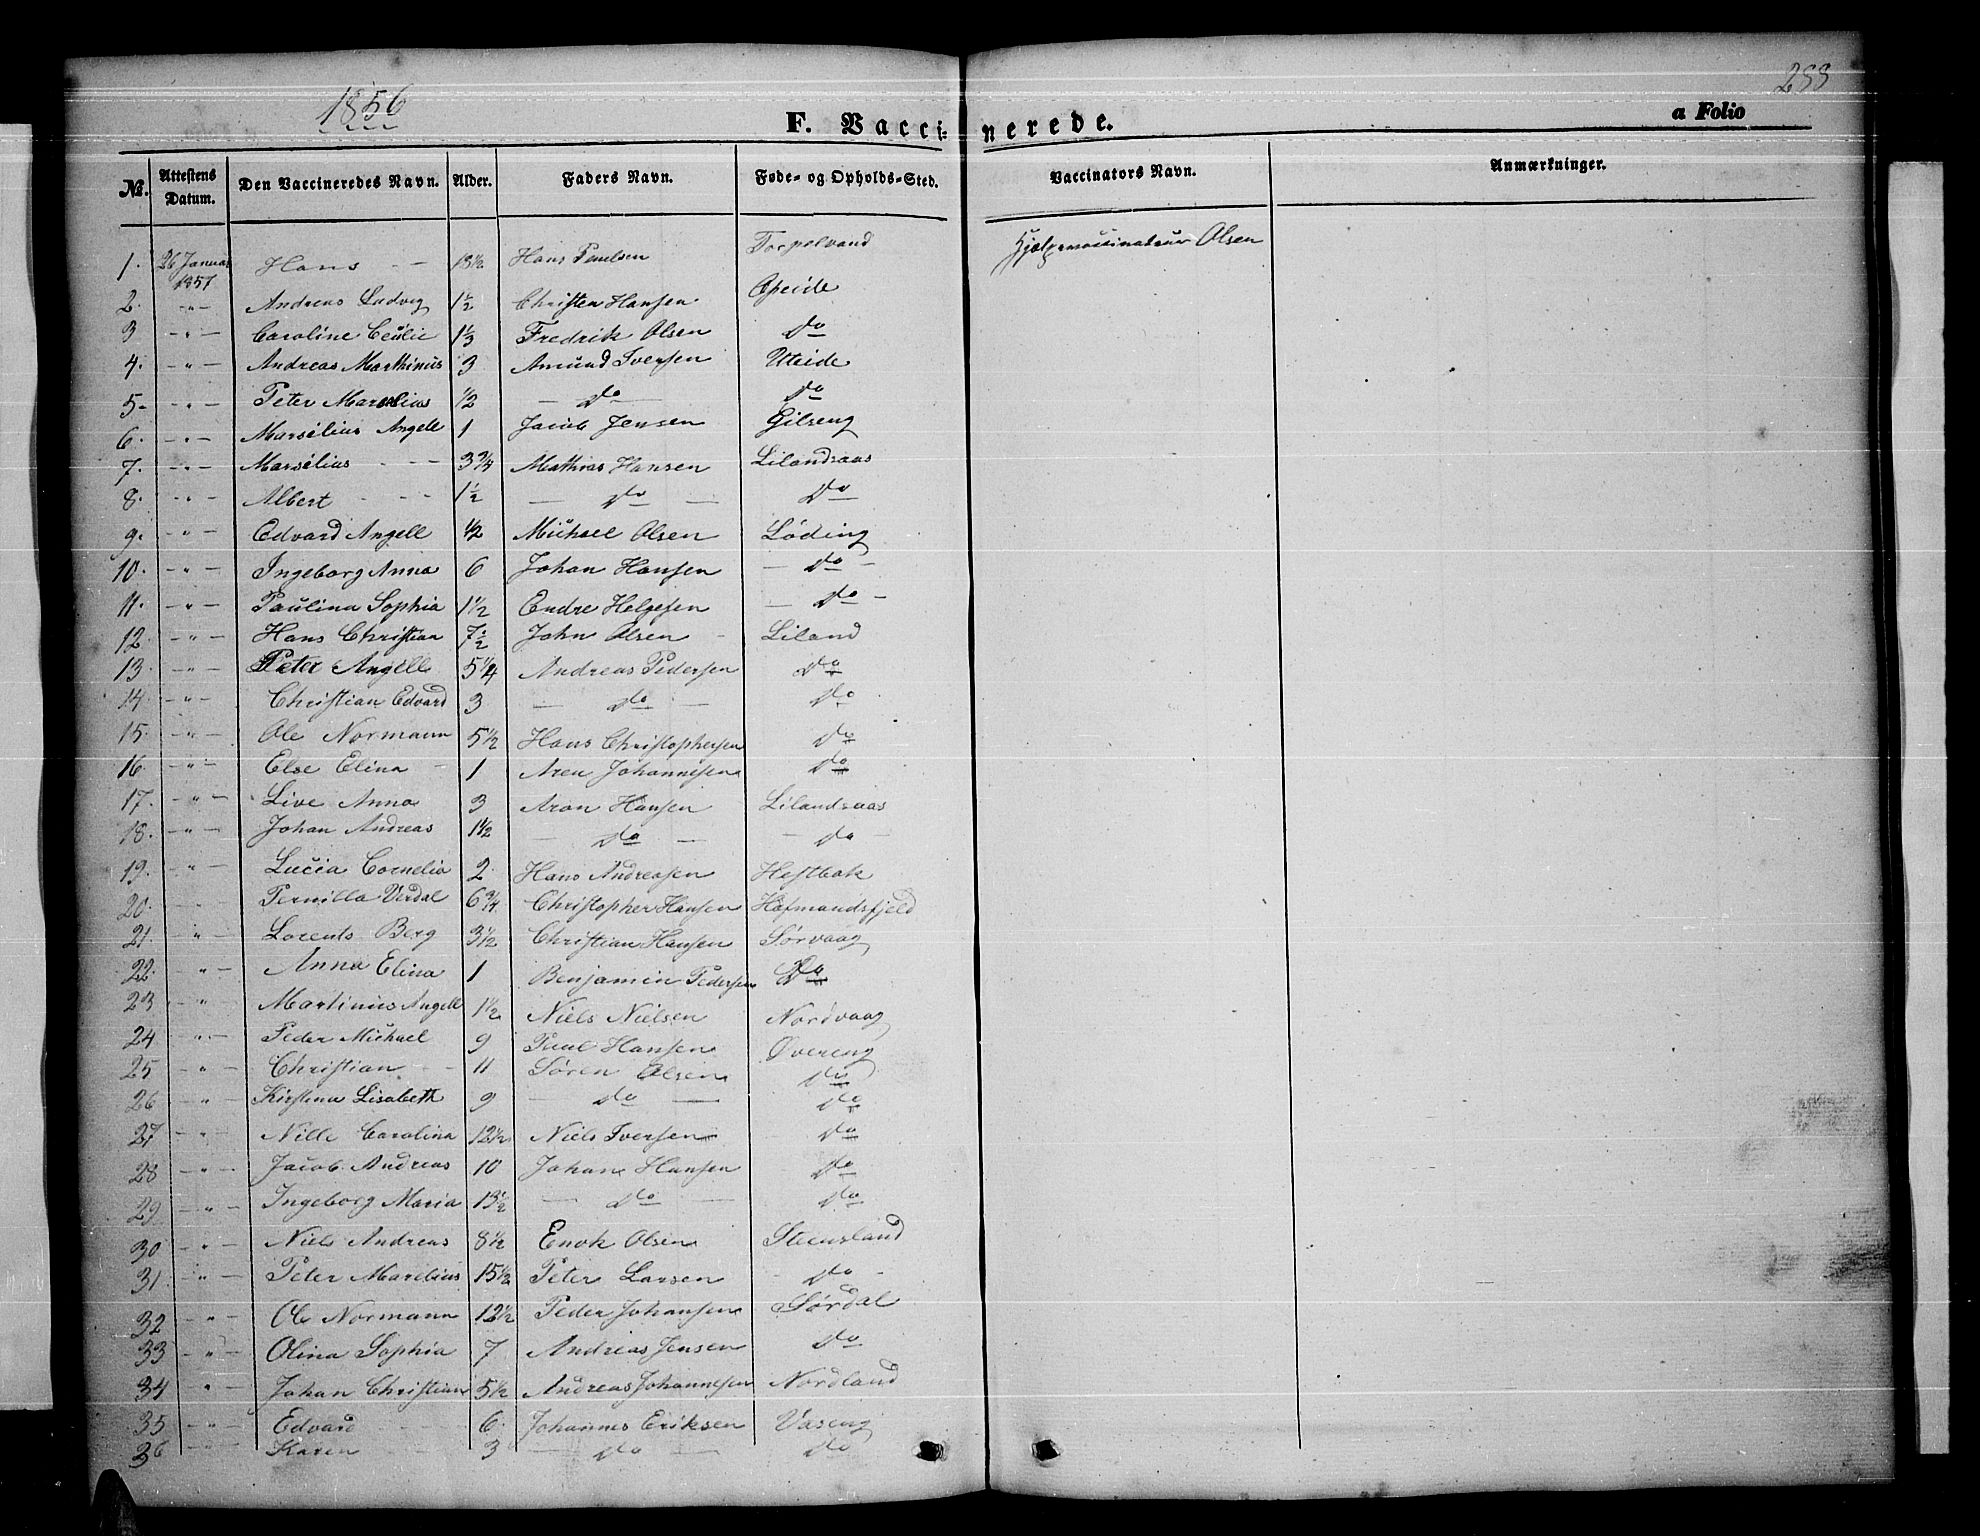 1856
288
F. Vaccinerede.
a Folio
No. Attestens Datum. Den Vaccineredes Navn. Alder. Faders Navn. Føde- og Opholds-Sted. Vaccinators Navn. Anmærkninger.
1. 26 Januar 1857 Hans 13½ Hans Paulsen Torpelvand Hjelpevaccinateur Olsen
2. -"- Andreas Ludvig 1½ Christen Hansen Opeide
3 -"- Caroline Cecilie 1⅓ Fredrik Olsen Do
4. -"- Andreas Marthinus 3 Amund Iversen Uteide
5- -"- Peter Marselius ½ Do Do
6. -"- Marselius Angell 1 Jacob Jensen Gilseng
7. -"- Marselius 3¾ Mathias Hansen Lilandsaas
8. -"- Albert 1½ Do Do
9. -"- Edvard Angell ½ Michael Olsen Løding
10. -"- Ingeborg Anna 6 Johan Hansen Do
11. -"- Paulina Sophia 1½ Endre Helgesen Do
12. -"- Hans Christian 7½ John Olsen Liland
13. -"- Peter Angell 5¼ Andreas Pedersen Do
14. -"- Christian Edvard 3 Do Do
15. -"- Ole Normann 5½ Hans Christophersen Do
16. -"- Else Elina 1 Aren Johannesen Do
17. -"- Live Anna 3 Aron Hansen Lilandsaas
18. -"- Johan Andreas 1½ Do Do
19. -"- Lucia Cornelia 2 Hans Andreasen Hestbak
20. Pernilla Verdal 6¾ Christopher Hansen Hafmandsfjeld
21. -"- Lorents Berg 3½ Christian Hansen Sørvaag
22. -"- Anna Elina 1 Benjamin Pedersen Do
23 -"- Martinus Angell 1½ Niels Nielsen Nordvaag
24 -"- Peder Michael 9 Paul Hansen Øvereng
25 -"- Christian 11 Søren Olsen Do
26 -"- Kirstina Lisabeth 9 Do Do
27 -"- Nille Carolina 12½ Niels Iversen Do
28 -"- Jacob Andreas 10 Johan Hansen Do
29 -"- Ingeborg Maria 13½ Do Do
30 -"- Niels Andreas 8½ Enok Olsen Steensland
31. -"- Peter Marelius 15½ Peter Larsen Do
32 -"- Ole Normann 12½ Peder Johansen Sørdal
33 -"- Olina Sophia 7 Andreas Jensen Do
34 -"- Johan Christian 5½ Andreas Johannesen Nordland
35 -"- Edvard 6. Johannes Eriksen Vaseng
36 -"- Karen 3 Do Do